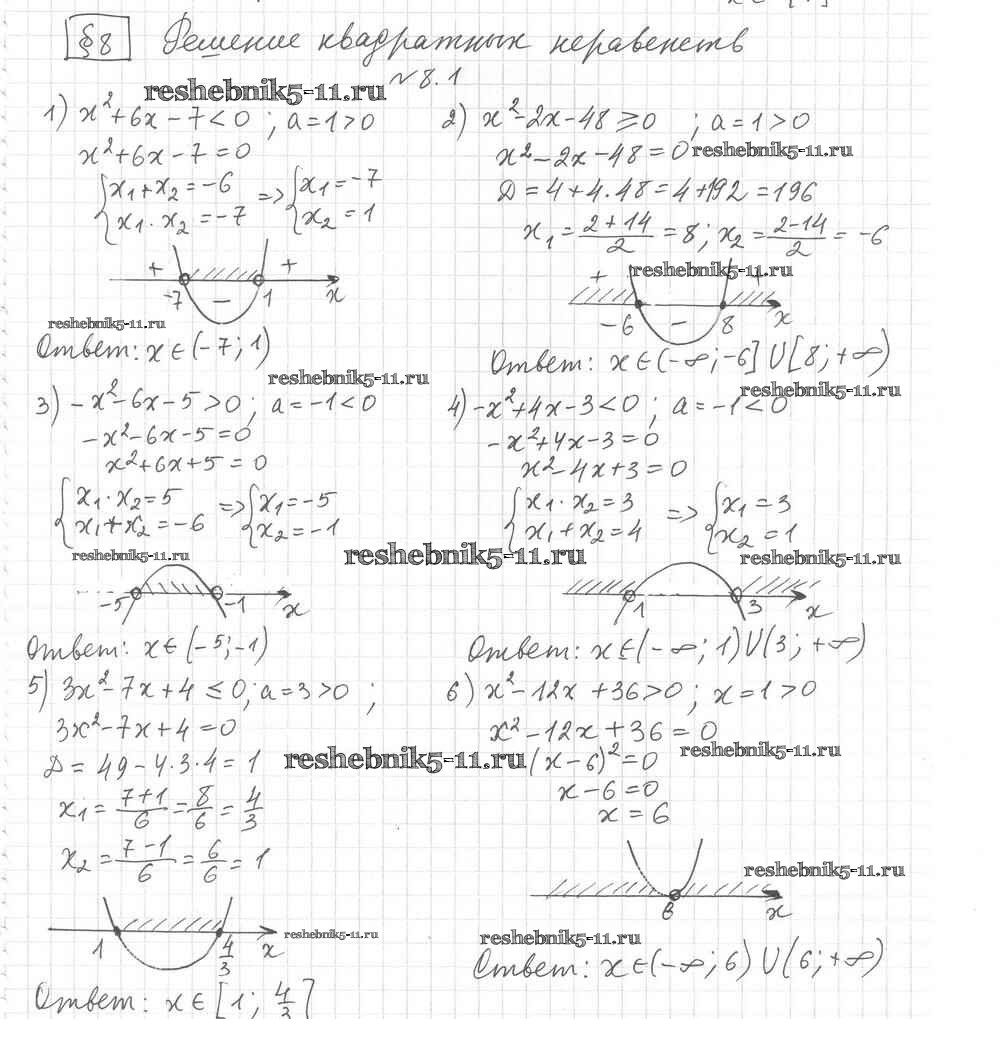 §8 Решение квадратных неравенств
№8.1
reshebnik5-11.ru
1) x²+6x-7<0 ; a=1>0
x²+6x-7=0
{x₁+x₂=-6
x₁·x₂=-7
=> {x₁=-7
x₂=1
+ +
-7 − 1 x
reshebnik5-11.ru
Ответ: x∈(-7; 1)
reshebnik5-11.ru
2) x²-2x-48≥0 ; a=1>0
x²-2x-48=0 reshebnik5-11.ru
Д=4+4·48=4+192=196
x₁=(2+14)/2=8; x₂=(2-14)/2=-6
reshebnik5-11.ru
+ +
-6 − 8 x
Ответ: x∈(-∞;-6]U[8;+∞)
reshebnik5-11.ru
3) -x²-6x-5>0; a=-1<0
-x²-6x-5=0
x²+6x+5=0
{x₁·x₂=5
x₁+x₂=-6
=> {x₁=-5
x₂=-1
reshebnik5-11.ru
-5 -1 x
Ответ: x∈(-5;-1)
4) -x²+4x-3<0; a=-1<0
-x²+4x-3=0
x²-4x+3=0
{x₁·x₂=3
x₁+x₂=4
=> {x₁=3
x₂=1
reshebnik5-11.ru
reshebnik5-11.ru
1 3 x
Ответ: x∈(-∞; 1)U(3; +∞)
5) 3x²-7x+4≤0; a=3>0 ;
3x²-7x+4=0
Д=49-4·3·4=1
reshebnik5-11.ru
x₁=(7+1)/6=8/6=4/3
x₂=(7-1)/6=6/6=1
1 4/3 x
reshebnik5-11.ru
Ответ: x∈[1; 4/3]
6) x²-12x+36>0; x=1>0
x²-12x+36=0
(x-6)²=0
reshebnik5-11.ru
x-6=0
x=6
reshebnik5-11.ru
6 x
reshebnik5-11.ru
Ответ: x∈(-∞;6)U(6;+∞)